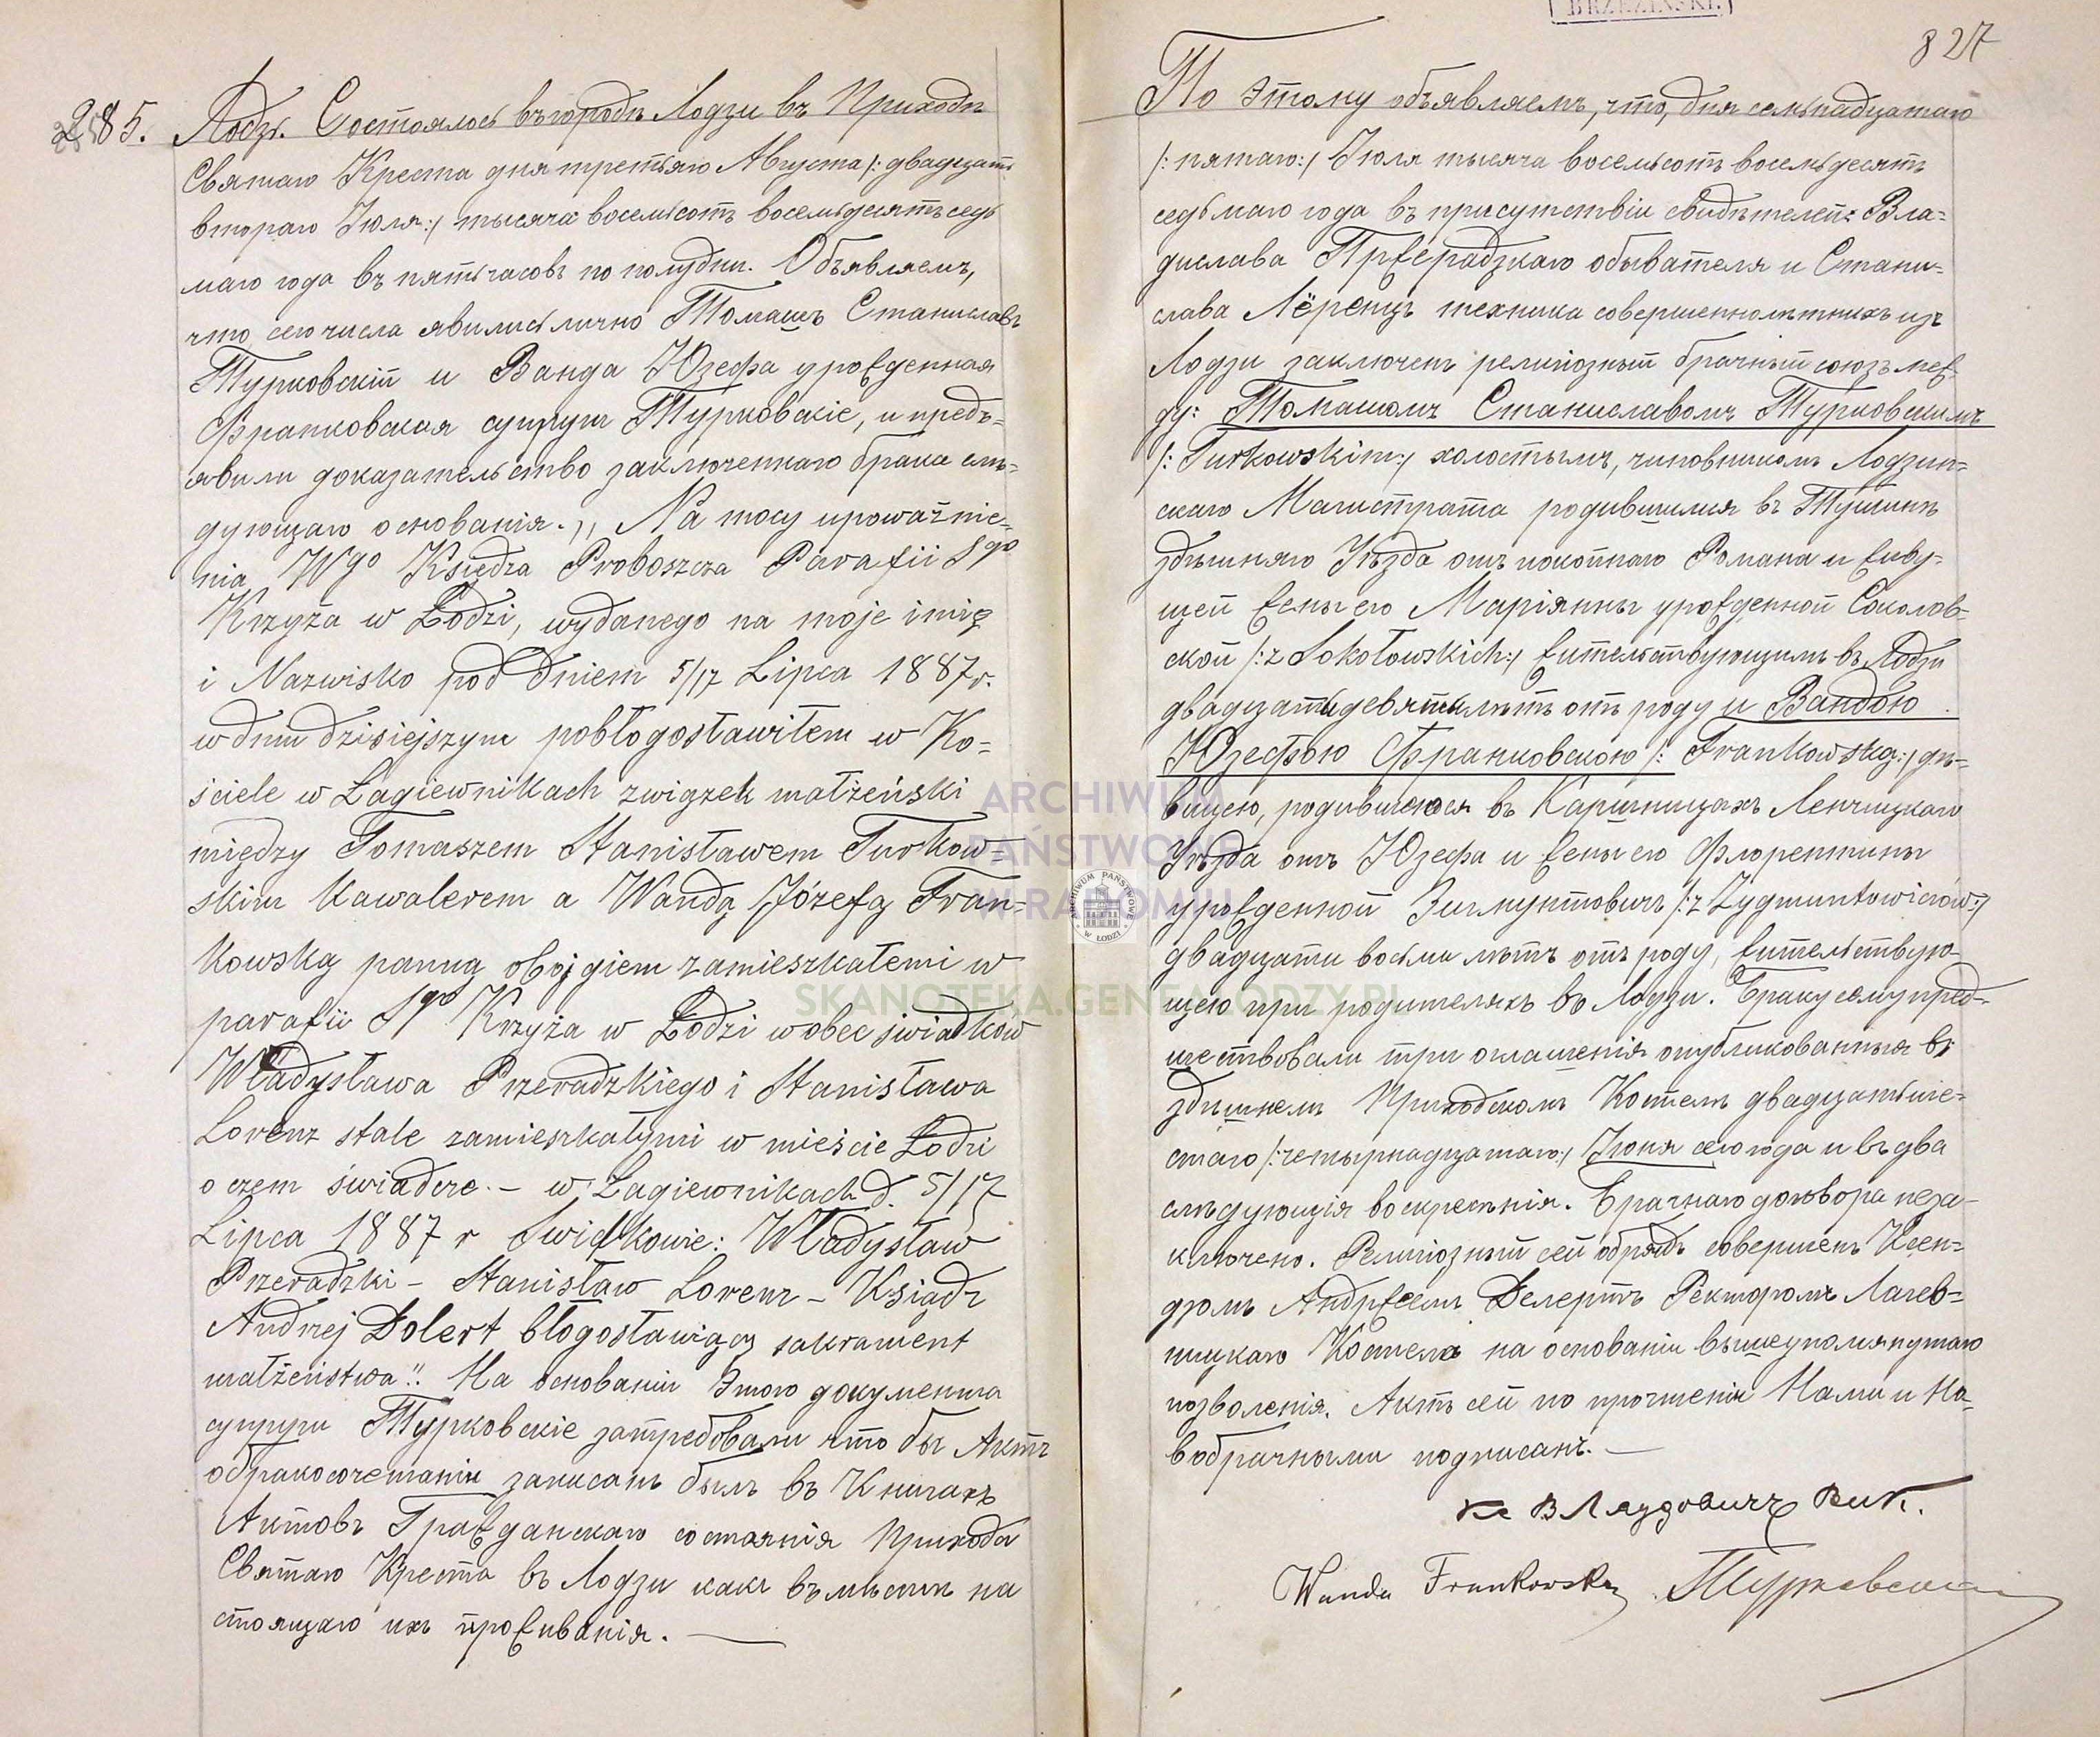 BRZEZIŃSKI.
827
285. Лодзь. Состоялось въ городѣ Лодзи въ Приходѣ
Святаго Креста дня третьяго Августа /: двадцать
втораго Июля :/ тысяча восемьсотъ восемьдесятъ седь
маго года въ пять часовъ по полудни. Объявляемъ,
что сего числа явились лично Томашъ Станиславъ
Турковскій и Ванда Юзефа урожденная
Франковская супруги Турковскіе, и предъ=
явили доказательство заключеннаго брака слѣ=
дующаго основанія. „Na mocy upoważnie=
nia Wgo Księdza Proboszcza Parafii Sgo
Krzyża w Łodzi, wydanego na moje imię
i Nazwisko pod Dniem 5/17 Lipca 1887 r.
w dniu dzisiejszym pobłogosławiłem w Ko=
ściele w Łagiewnikach związek małżeński
między Tomaszem Stanisławem Turkow=
skim Kawalerem a Wandą Józefą Fran=
kowską panną obojgiem zamieszkałemi w
parafii Sgo Krzyża w Łodzi wobec świadkow
Władysława Przeradzkiego i Stanisława
Lorenz stale zamieszkałymi w mieście Łodzi
o czem świadczę. – w Łagiewnikach d. 5/17
Lipca 1887 r Swiadkowie: Władysław
Przeradzki – Stanisław Lorenz – Ksiądz
Andrzej Dolert, błogosławiący sakrament
małżeństwa". На основаніи этого документа
супруги Турковскіе затребовали что бы Актъ
о бракосочетаніи записанъ былъ въ Книгахъ
Актовъ Гражданскаго состоянія Прихода
Святаго Креста въ Лодзи какъ въ мѣстѣ на
стоящаго ихъ проживанія. —
По этому объявляемъ, что, дня семьнадцатаго
/: пятаго :/ Июля тысяча восемьсотъ восемьдесятъ
седьмаго года въ присутствіи свидѣтелей: Вла=
дислава Пржерадзкаго обывателя и Стани=
слава Лёренцъ техника совершеннолѣтнихъ изъ
Лодзи заключенъ религіозный брачный союзъ меж=
ду: Томашомъ Станиславомъ Турковскимъ
/: Turkowskim :/ холостымъ, чиновникомъ Лодзин=
скаго Магистрата родившимся въ Тушинѣ
здѣшняго Уѣзда отъ покойнаго Романа и живу=
щей жены его Маріянны урожденной Соколов=
ской /: z Sokołowskich :/ жительствующимъ въ Лодзи
двадцати девяти лѣтъ отъ роду и Вандою
Юзефою Франковскою /: Frankowską :/ дѣ=
вицею, родившеюся въ Каршницахъ Ленчицкаго
Уѣзда отъ Юзефа и жены его Флорентины
урожденной Зигмунтовичъ /: z Zygmuntowiczów :/
двадцати восьми лѣтъ отъ роду, жительствую=
щею при родителяхъ въ Лодзи. Браку сему пред=
шествовали три оглашенія опубликованныя въ
здѣшнемъ Приходскомъ Костелѣ двадцать ше=
стаго /: четырнадцатаго :/ Июня сего года и въ два
слѣдующія воскресенія. Брачнаго договора неза=
ключено. Религіозный сей обрядъ совершенъ Ксен=
дзомъ Андржеемъ Делертъ Ректоромъ Лагев=
ницкаго Костела на основаніи вышеупомянутаго
позволенія. Актъ сей по прочтеніи Нами и Но=
вобрачными подписанъ. —
Кс В Ляудовичъ Вик.
Wanda Frankowska Турковскій
ARCHIWUM
PAŃSTWOWE
W RADOMIU
ARCHIWUM PAŃSTWOWE W ŁODZI
SKANOTEKA.GENEALODZY.PL